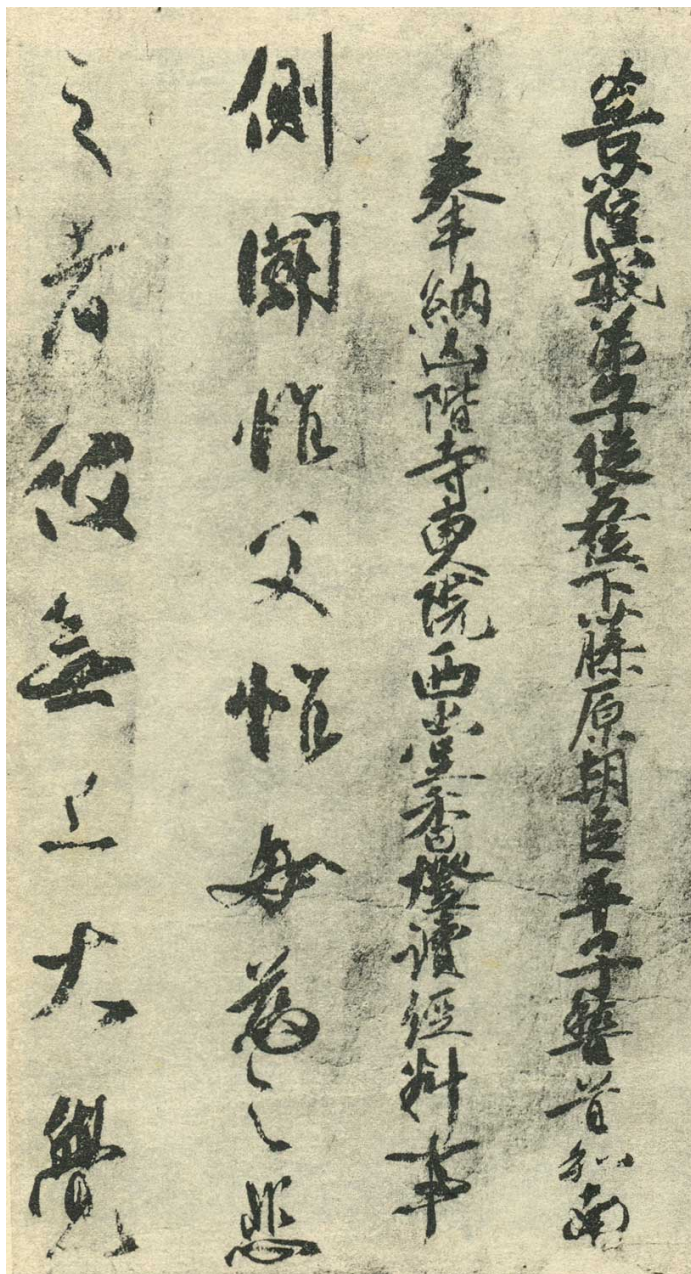 菩薩戒弟子從五位下藤原朝臣平子稽首和南
奉納山階寺東院西堂香燈讀經料事
側聞惟父惟母慈之悲
之者彼無上大覺